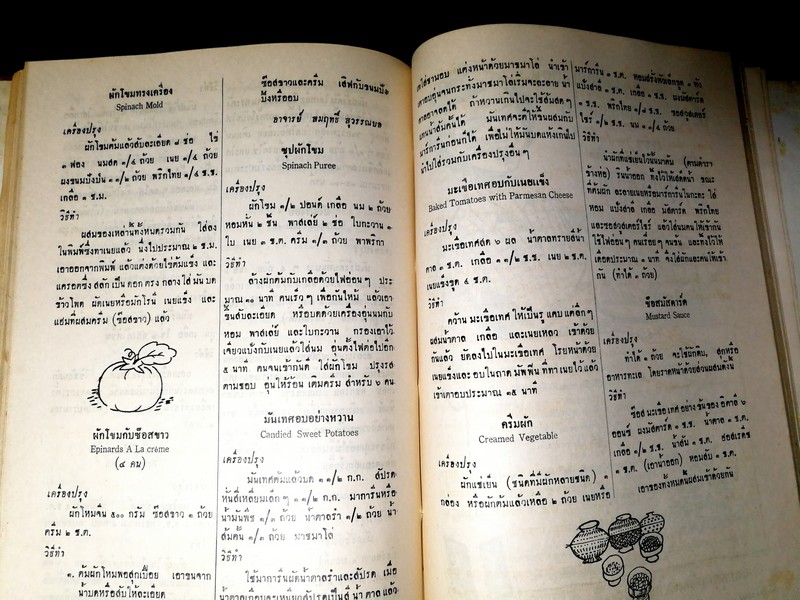 ผักโขมทรงเครื่อง
Spinach Mold
เครื่องปรุง
ผักโขมต้มแล้วสับละเอียด ๘ ช้อ ไข่
๓ ฟอง นมสด ๑/๔ ถ้วย เนย ๑/๔ ถ้วย
ผงขนมปังป่น ๑ ๑/๒ ถ้วย พริกไทย ๑/๔ ช.ช.
เกลือ ๑ ช.ม.
วิธีทำ
ผสมของเหล่านี้ทั้งหมดรวมกัน ใส่ลง
ในพิมพ์ซึ่งทาเนยแล้ว นึ่งไปประมาณ ๒ ช.ม.
เอาออกจากพิมพ์ แล้วแต่งด้วยไข่ต้มแข็ง และ
แครอตซึ่ง สลัก เป็น ดอก ตรง กลาง ใส่ มัน บด
ข้าวโพด ผัดเนยหรือมักโรนี เนยแข็ง และ
แฮมที่ผสมครีม (ซ๊อสขาว) แล้ว
ผักโขมกับซ๊อสขาว
Epinards A La crème
(๔ คน)
เครื่องปรุง
ผักโหมจีน ๕๐๐ กรัม ซ๊อสขาว ๑ ถ้วย
ครีม ๒ ช.ต.
วิธีทำ
๑. ต้มผักโหมพอสุกเปื่อย เอาขนจาก
น้ำบดหรือสับให้ละเอียด
ซ๊อสขาวและครีม เสิฟกับขนมปัง
ปิ้งหรืออบ
อาจารย์ หมฤทธิ์ สุวรรณบล
ซุปผักโขม
Spinach Puree
เครื่องปรุง
ผักโขม ๑/๒ ปอนด์ เกลือ นม ๒ ถ้วย
หอมหั่น ๒ ชิ้น พาสเลย์ ๒ ช่อ ใบกะวาน ๑
ใบ เนย ๓ ช.ต. ครีม ๑/๓ ถ้วย พาพริกา
วิธีทำ
ล้างผักต้มกับเกลือด้วยไฟอ่อนๆ ประ
มาณ ๑๐ นาที คนเร็วๆ เพื่อกันไหม้ แล้วเอา
ขึ้นสับละเอียด หรือบดด้วยเครื่องอุ่นนมกับ
หอม พาสเลย์ และใบกะวาน กรองเอาไว้
เจียวแป้งกับเนยแล้วใส่นม อุ่นตั้งไฟต่อไปอีก
๕ นาที คนจนเข้ากันดี ใส่ผักโขม ปรุงรส
ตามชอบ อุ่นให้ร้อน เติมครีม สำหรับ ๖ คน
มันเทศอบอย่างหวาน
Candied Sweet Potatoes
เครื่องปรุง
มันเทศต้มแล้วบด ๑ ๑/๒ ก.ก. สัปรด
หั่นสี่เหลี่ยมเล็กๆ ๑ ๑/๒ ก.ก. มาการีนหรือ
น้ำมันพืช ๑/๓ ถ้วย น้ำตาลรำ ๑/๒ ถ้วย น้ำ
ส้มคั้น ๑/๓ ถ้วย มาชมาโล่
วิธีทำ
ใช้มาการีนผัดน้ำตาลรำและสัปรด เมื่อ
แต่งหน้าด้วยมาชมาโล่ นำเข้า
เตาอบอุ่นจนกระทั่งมาชมาโล่เริ่มจะละลาย น้ำ
ตาลอาจลดได้ ถ้าหวานเกินไปจะใช้ส้มสดๆ
แทนน้ำส้มคั้นได้ มันเทศจะคั่วให้ขึ้นผสมกับ
มาร์การีนก่อนก็ได้ เพื่อไม่ให้มันบดแห้งเกินไป
นำไปใส่รวมกับเครื่องปรุงอื่นๆ
มะเขือเทศอบกับเนยแข็ง
Baked Tomatoes with Parmesan Cheese
เครื่องปรุง
มะเขือเทศสด ๖ ผล น้ำตาลทรายสีน้ำ
ตาล ๑ ช.ต. เกลือ ๑ ๑/๒ ช.ช. เนย ๒ ช.ต.
เนยแข็งขูด ๔ ช.ต.
วิธีทำ
คว้าน มะเขือเทศ ให้เป็นรู แคบ แค่ลึกๆ
ผสมน้ำตาล เกลือ และเนยเหลว เข้าด้วย
กันแล้ว ยัดลงไปในมะเขือเทศ โรยหน้าด้วย
เนยแข็งและ อบในถาด มีพื้น ที่ทา เนยไว้ แล้ว
เข้าเตาอบประมาณ ๑๕ นาที
ครีมผัก
Creamed Vegetable
เครื่องปรุง
ผักแช่เย็น (ชนิดที่มีผักหลายชนิด) ๑
กล่อง หรือผักต้มแล้วเหลือ ๒ ถ้วย เนยหรือ
มาร์การีน ๑ ช.ต. หอมฝรั่งหัวเล็กขูด ๑ หัว
แป้งสาลี ๑ ช.ต. เกลือ ๑ ช.ช. ผงมัสตาด
๑ ช.ช. พริกไทย ๑/๔ ช.ช. ซอสวุสเตอร์
ไชร์ ๑/๒ ช.ช. นม ๑ ๑/๔ ถ้วย
วิธีทำ
นำผักที่แช่เย็นไว้นั้นมาต้ม (ตามตำรา
ข้างห่อ) รินน้ำออก ทิ้งไว้ให้เสด็จน้ำ ขณะ
ที่ต้มผัก ละลายเนยหรือมาร์การีนในกะทะ ใส่
หอม แป้งสาลี เกลือ มัสตาด พริกไทย
และซอสวุสเตอร์ไชร์ แล้วใส่นมคนให้เข้ากัน
ใช้ไฟอ่อนๆ คนเรื่อยๆ จนข้น และทิ้งไว้ให้
เดือดประมาณ ๑ นาที จึงใส่ผักและคนให้เข้า
กัน (ทำได้ ๓ ถ้วย)
ซ๊อสมัสตาร์ด
Mustard Sauce
เครื่องปรุง
ทำได้ ๑ ถ้วย จะใช้ผักดิบ, สุกหรือ
อาหารทะเล โดยราดหน้าด้วยส่วนผสมดังนี้
วิธีทำ
ซ๊อส มะเขือ เทศ อย่าง ข้น ของ อิตาลี ๖
ออนซ์ ผงมัสตาร์ด ๑ ช.ช. น้ำตาล ๑ ช.ต.
เกลือ ๑/๒ ช.ช. น้ำส้ม ๑ ช.ต. ฮอสเรดิช
๑ ช.ต. (เอาน้ำออก) หอมสับ ๑ ช.ต.
เอาของทั้งหมดนี้ผสมเข้าด้วยกัน